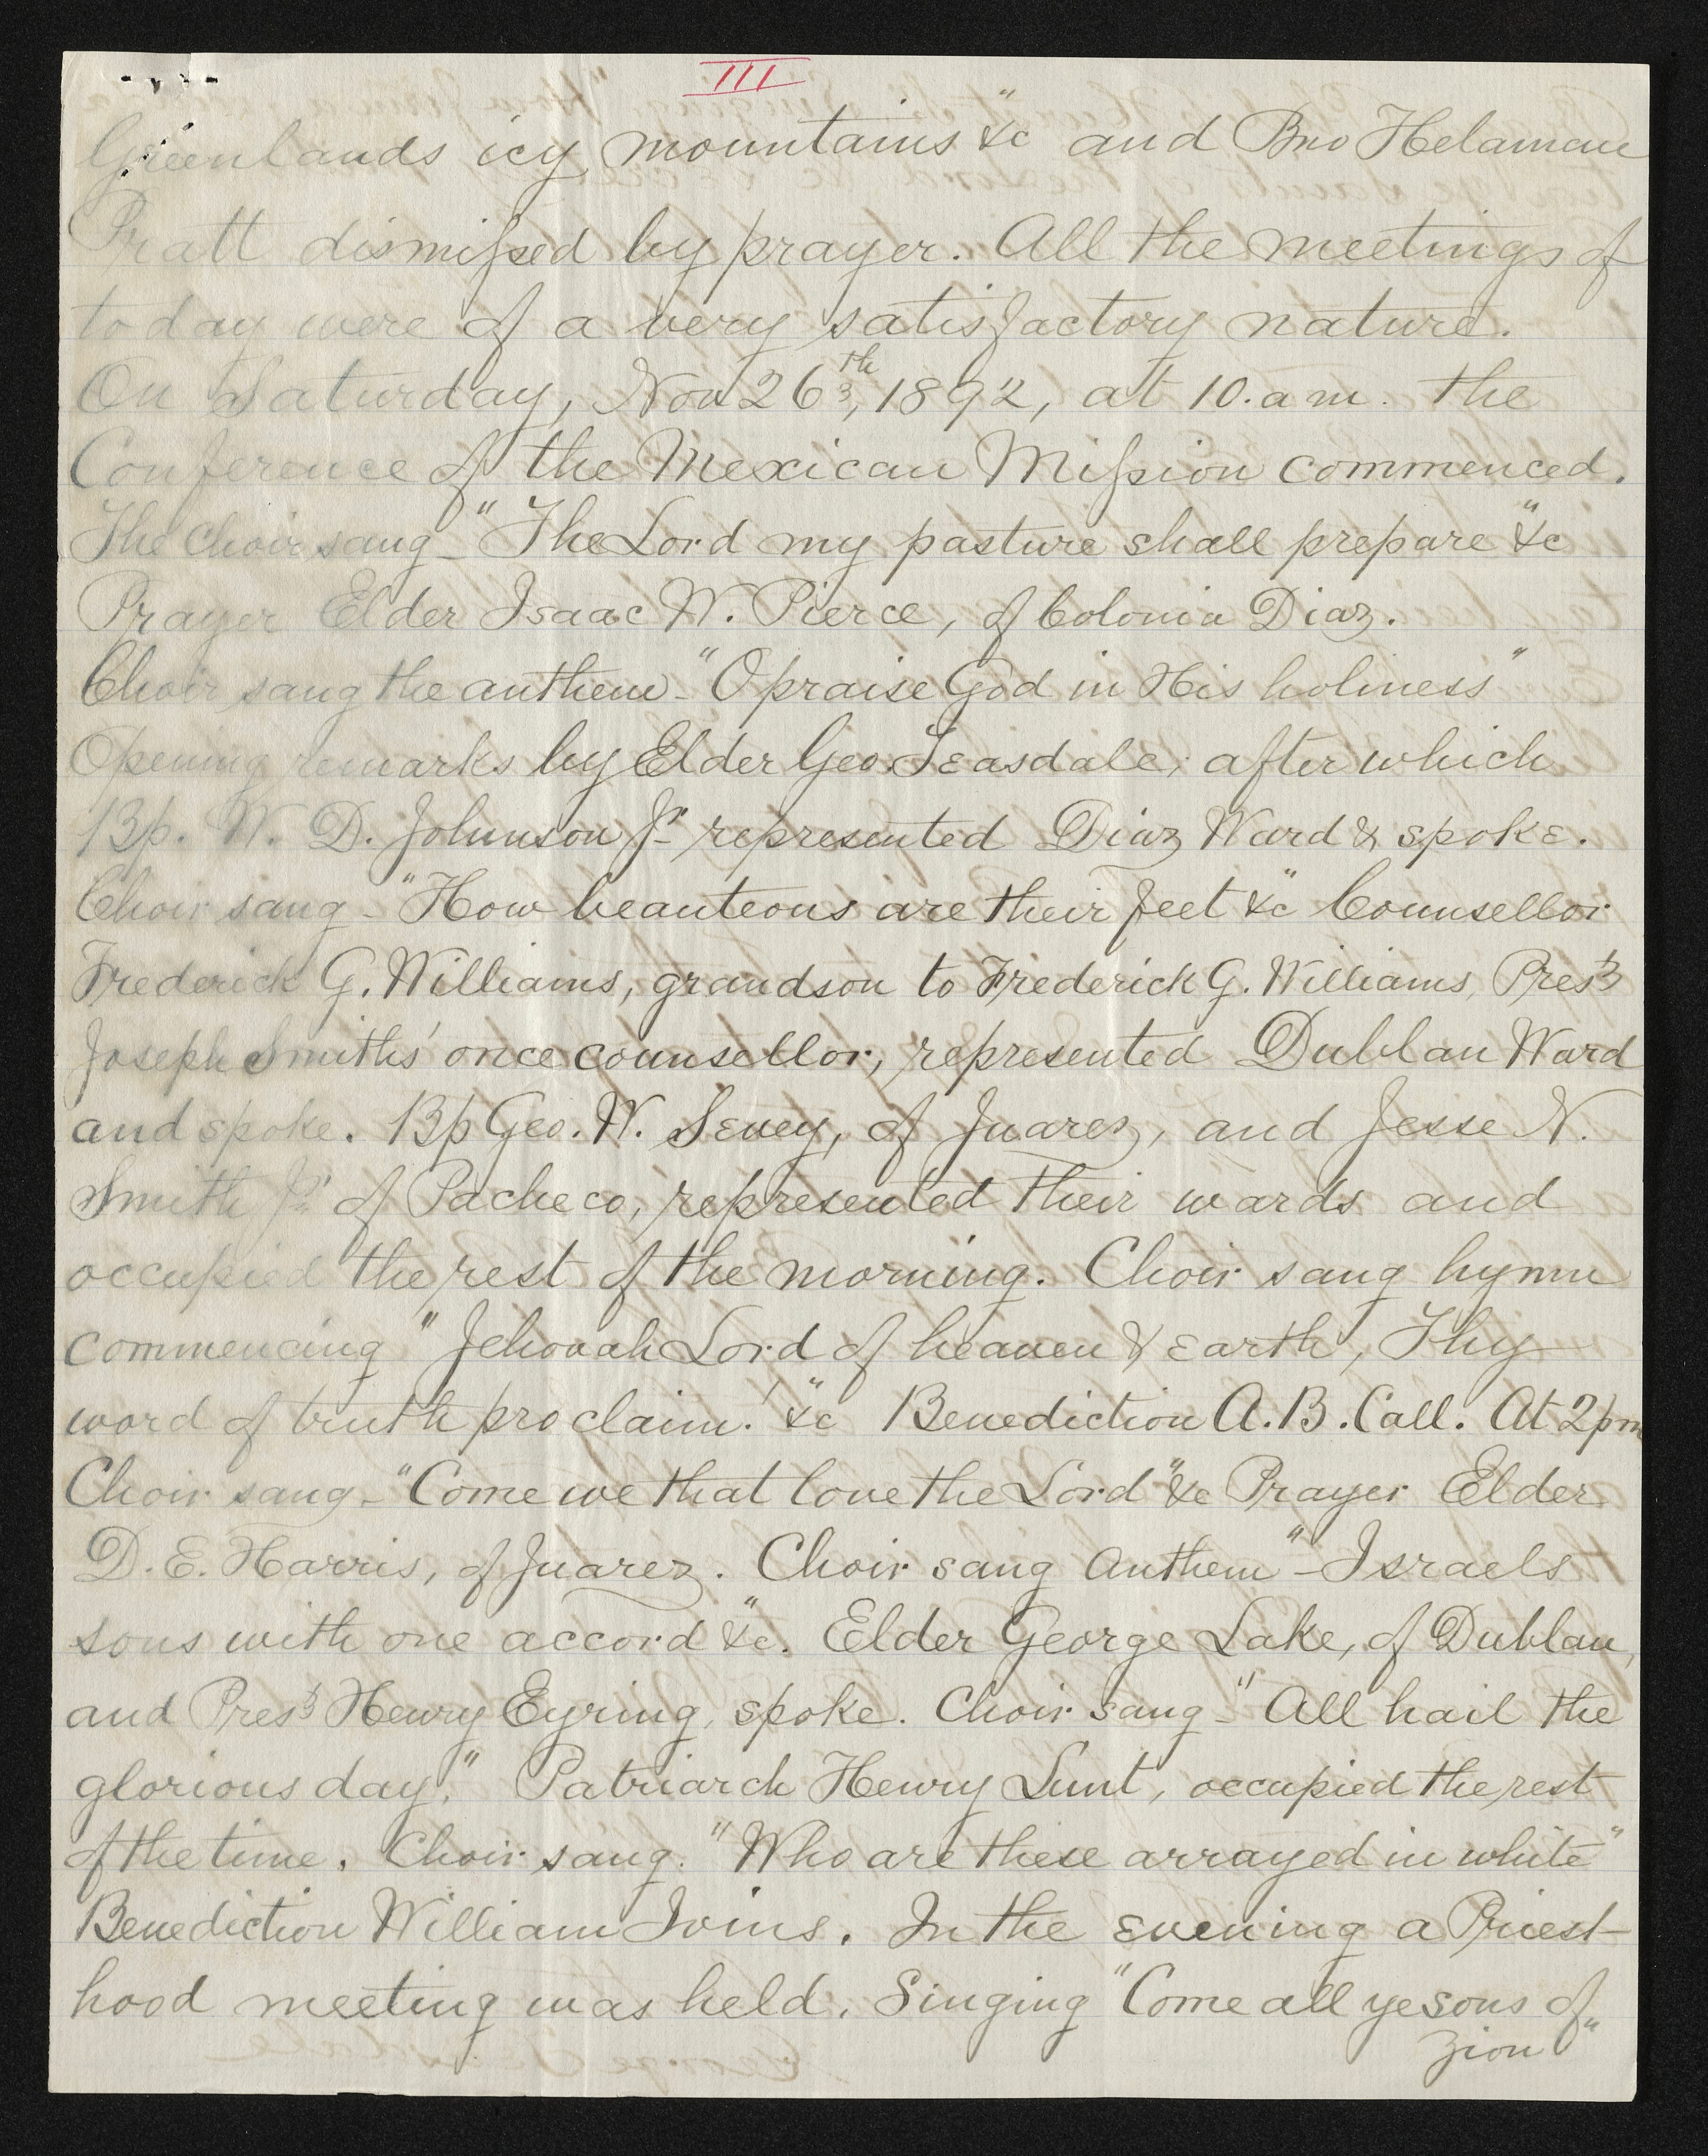 III
Greenlands icy mountains" &c and Bro Helaman
Pratt dismissed by prayer. All the meetings of
today were of a very satisfactory nature.
On Saturday, Nov 26th, 1892, at 10. a m. the
Conference of the Mexican Mission commenced.
The Choir sang - "The Lord my pasture shall prepare" &c
Prayer Elder Isaac W. Pierce, of Colonia Diaz.
Choir sang the anthem - "O praise God in His holiness"
Opening remarks by Elder Geo Teasdale; after which
Bp. W. D. Johnson Jr. represented Diaz Ward & spoke.
Choir sang - "How beauteous are their feet &c" Counsellor
Frederick G. Williams, grandson to Frederick G. Williams, Prest
Joseph Smiths' once counsellor, represented Dublan Ward
and spoke. Bp Geo. W. Sevey, of Juarez, and Jesse N.
Smith Jr. of Pacheco, represented their wards and
occupied the rest of the morning. Choir sang hymn
commencing "Jehovah Lord of heaven & earth, Thy
word of truth proclaim!" &c Benediction A. B. Call. At 2 pm
Choir sang - "Come we that love the Lord" &c Prayer Elder
D. E. Harris, of Juarez. Choir sang Anthem "- Israels
sons with one accord" &c. Elder George Lake, of Dublan,
and Prest Henry Eyring, spoke. Choir sang - "All hail the
glorious day." Patriarch Henry Lunt, occupied the rest
of the time. Choir sang. "Who are these arrayed in white"
Benediction William Ivins. In the evening a Priest-
hood meeting was held. Singing "Come all ye sons of
Zion"